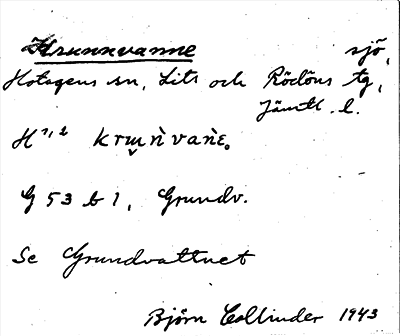 Krunnvanne sjö,
Hotagens sn, Lits och Rödöns tg,
Jämtl. l.
H 1,2 krṷǹvaǹe.
G 53 b 1, Grundv.
Se Grundvattnet
Björn Collinder 1943